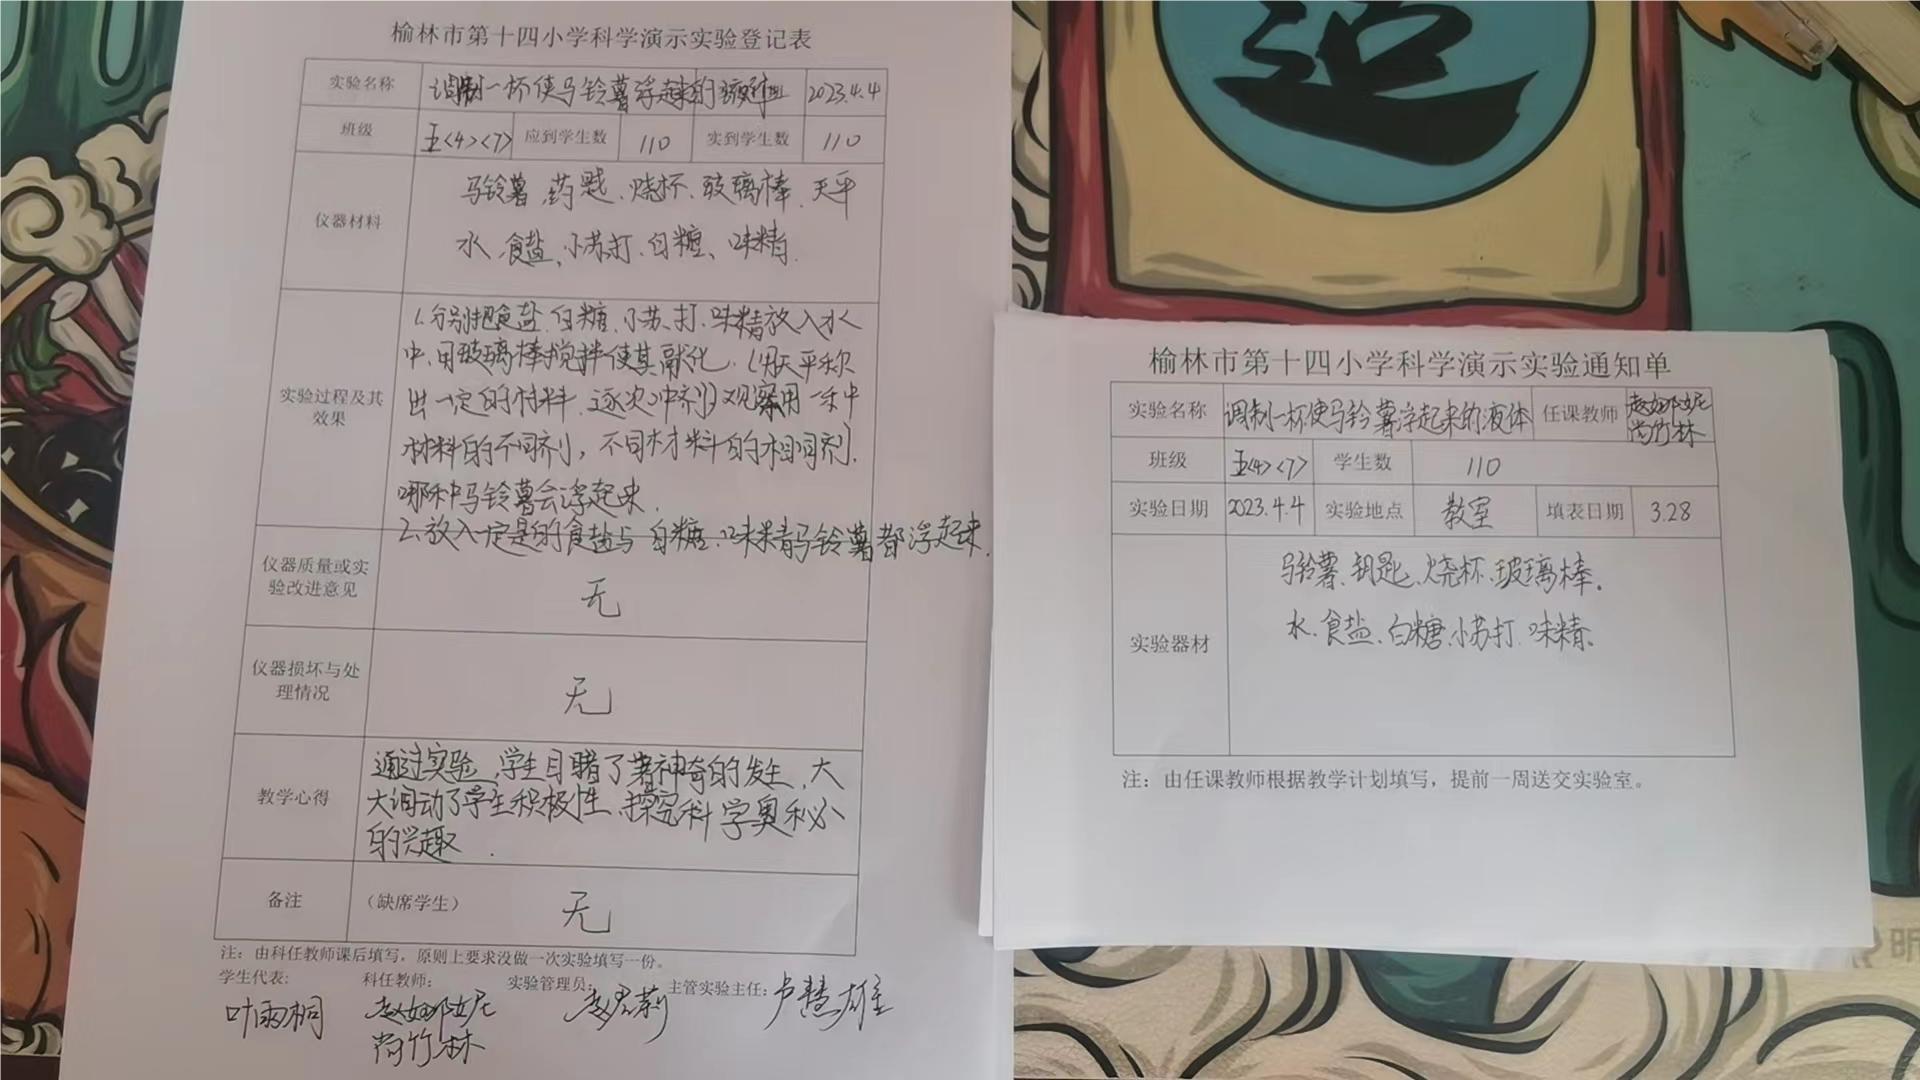 榆林市第十四小学科学演示实验登记表
实验名称 调制一杯使马铃薯浮起来的液体 2023.4.4
班级 五<4><7> 应到学生数 110 实到学生数 110
仪器材料
马铃薯、药匙、烧杯、玻璃棒、天平
水、食盐、小苏打、白糖、味精.
实验过程及其效果
1.分别把食盐、白糖、小苏、打、味精放入水
中、用玻璃棒搅拌使其融化.(用天平称
出一定的材料.逐次冲剂)观察用一种中
材料的不同剂,不同材料的相同剂.
哪种马铃薯会浮起来.
2.放入一定是的食盐与白糖、味精马铃薯都浮起来.
仪器质量或实验改进意见 无
仪器损坏与处理情况 无
教学心得
通过实验,学生目睹了著神奇的发生,大
大调动了学生积极性、探究科学奥秘
的兴趣.
备注 (缺席学生) 无
注:由科任教师课后填写,原则上要求没做一次实验填写一份。
学生代表: 科任教师: 实验管理员: 主管实验主任:
叶雨桐 赵娜妮 卢慧雄
尚竹林
造
榆林市第十四小学科学演示实验通知单
实验名称 调制一杯使马铃薯浮起来的液体 任课教师 赵娜妮
尚竹林
班级 五<4><7> 学生数 110
实验日期 2023.4.4 实验地点 教室 填表日期 3.28
实验器材
马铃薯、钥匙、烧杯、玻璃棒.
水、食盐、白糖、小苏打、味精.
注:由任课教师根据教学计划填写,提前一周送交实验室。